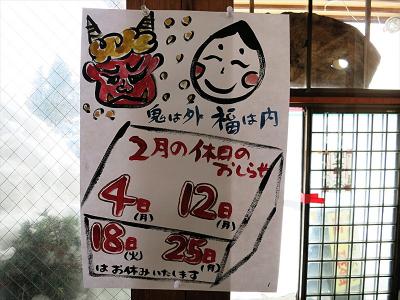 鬼は外 福は内
2月の休日の
おしらせ
4日(月) 12日(月)
18日(火) 25日(月)
はお休みいたします